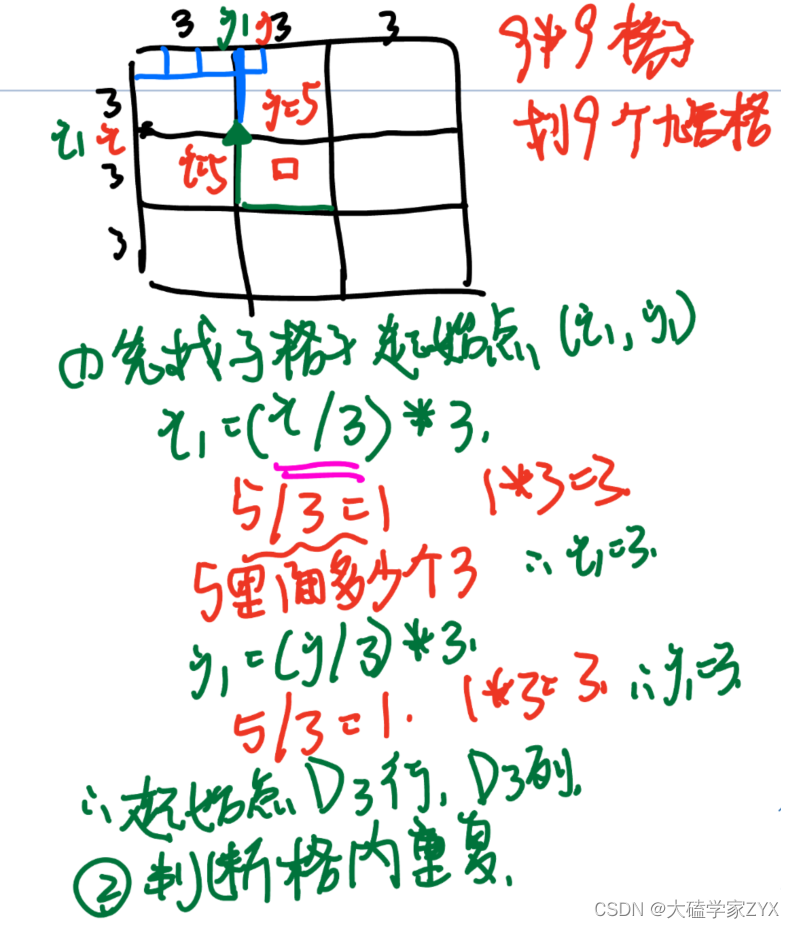 3 y1 y 3 3
9*9格子
3
y=5
划9个九宫格
i1 i
i=5
3
3
(1)先找子格子起始点(i1,y1)
i1=(i/3)*3.
5/3=1 1*3=3
5里面多少个3 ∴i1=3.
y1=(y/3)*3.
5/3=1. 1*3=3. ∴y1=3.
∴起始点D3行,D3列.
②判断格内重复.
CSDN @大磕学家ZYX